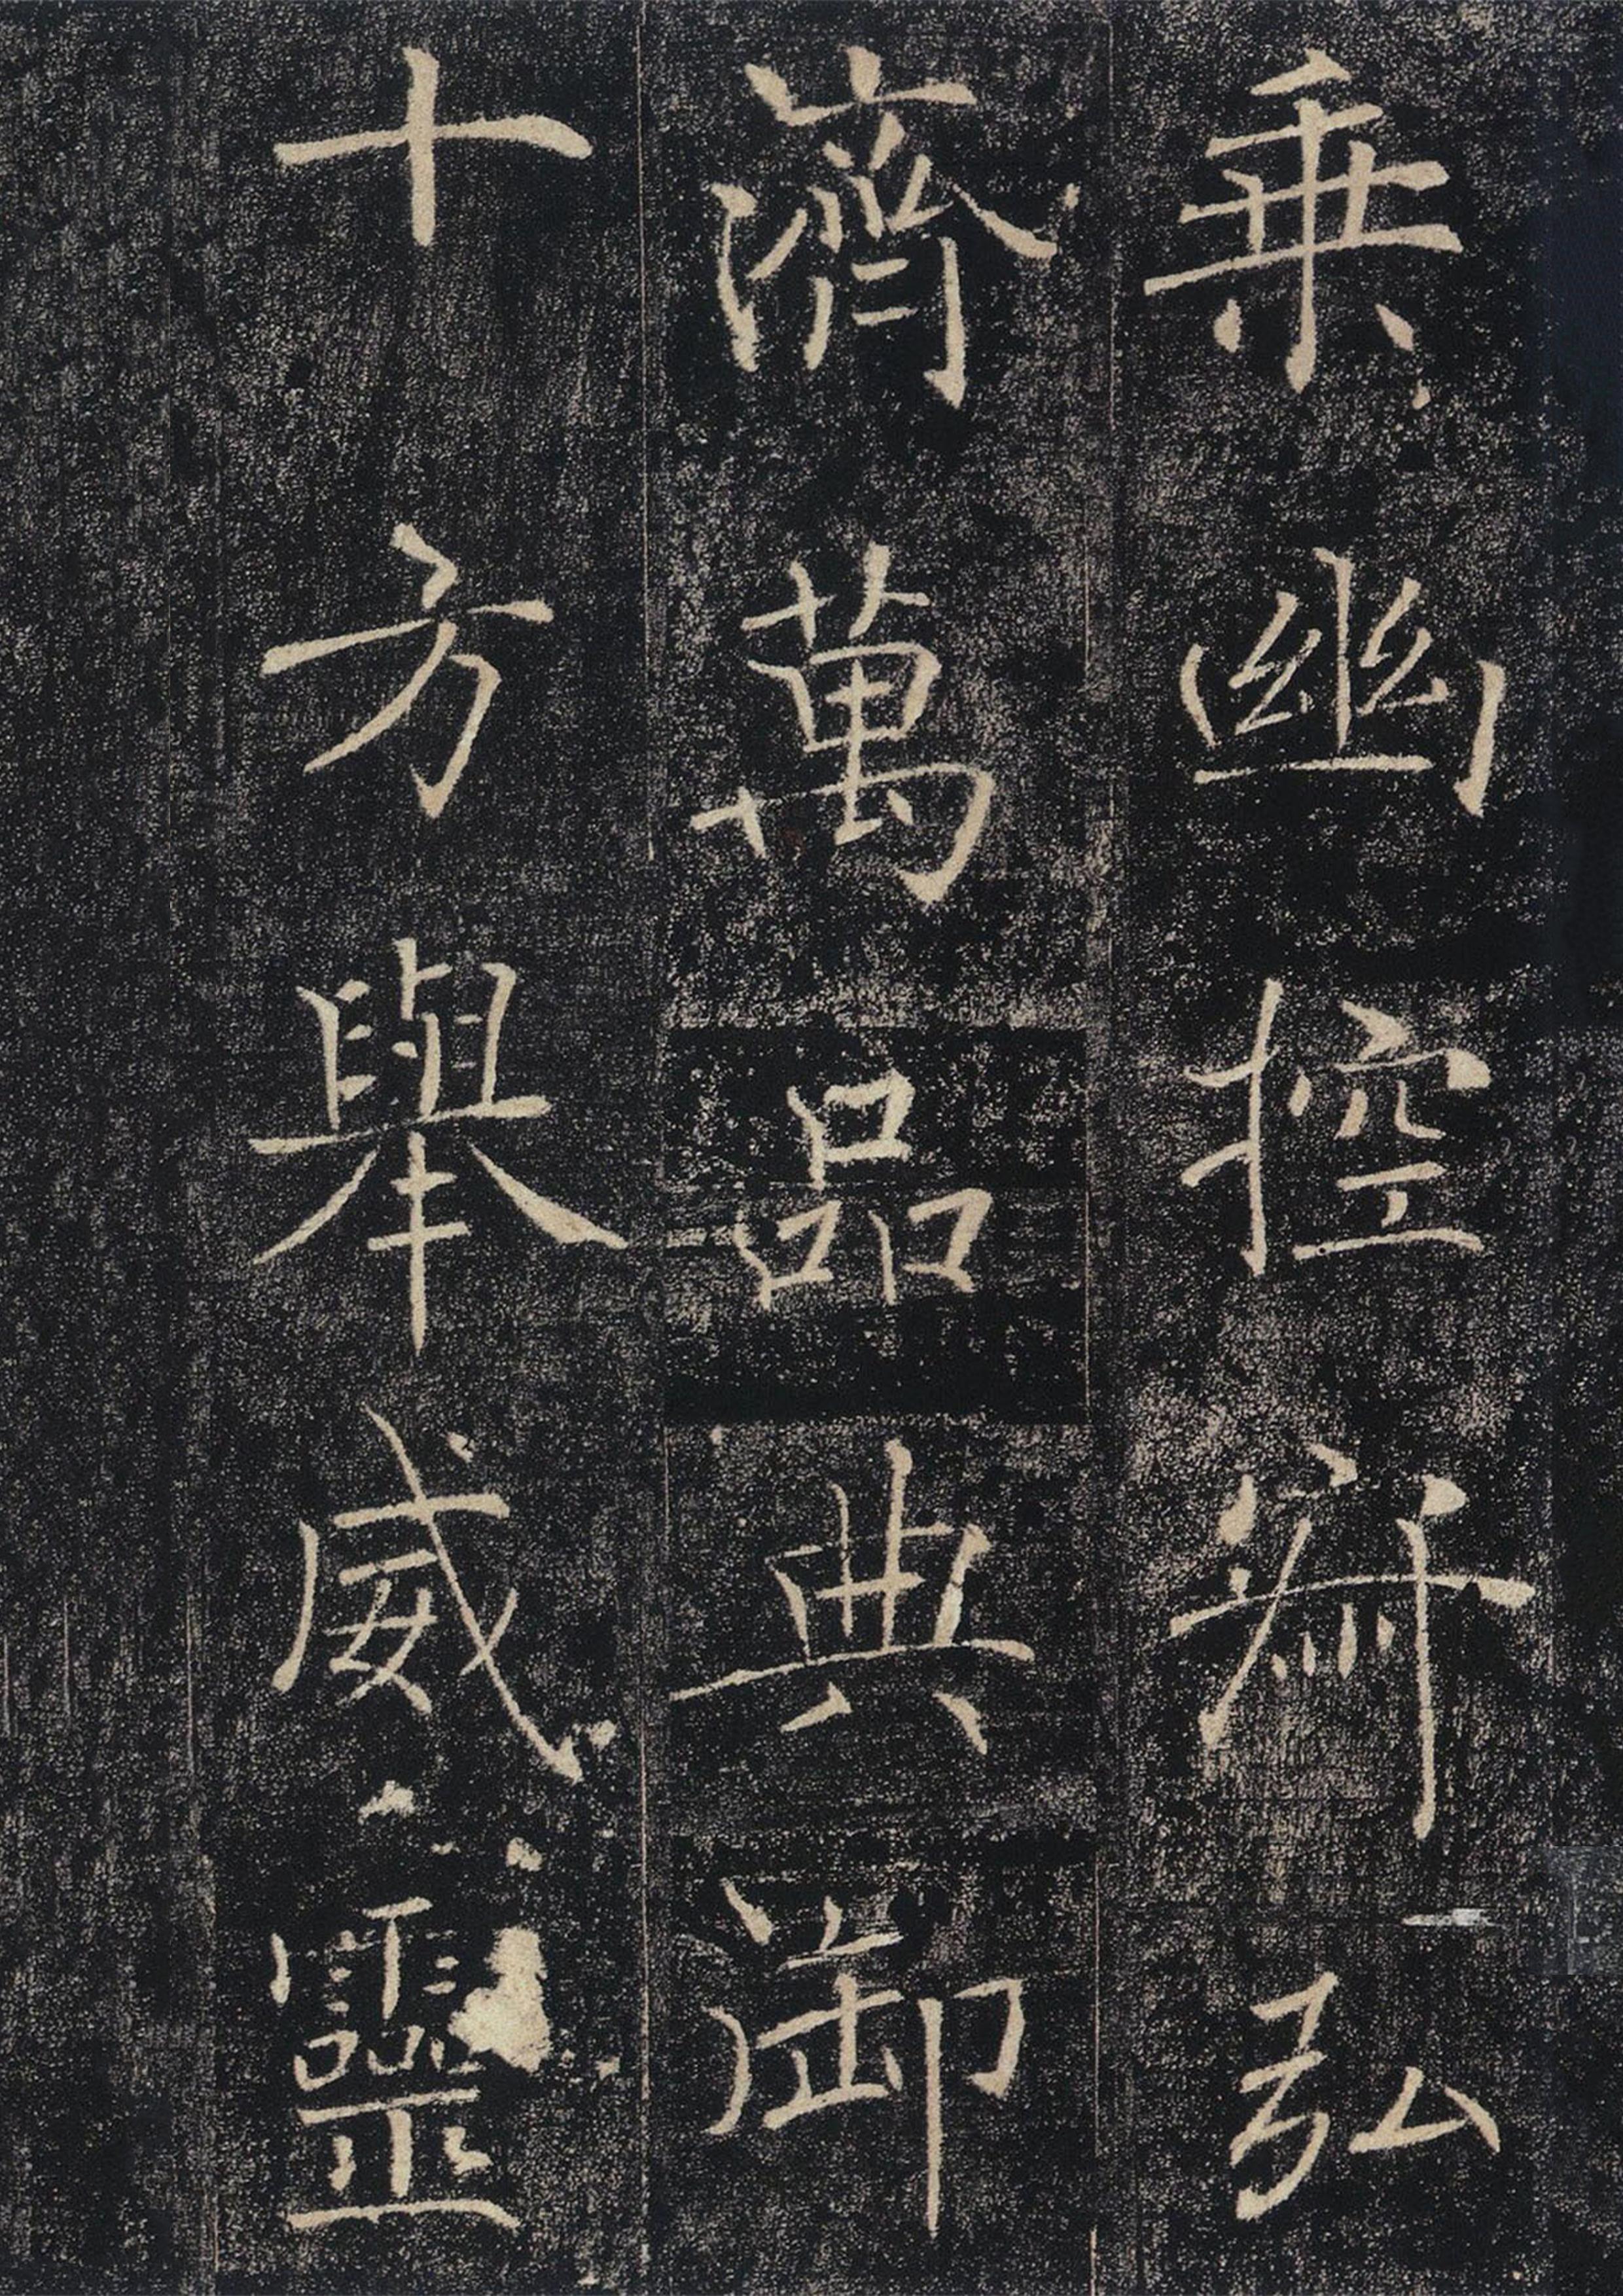 乘幽控寂弘
濟萬品典御
十方舉威靈